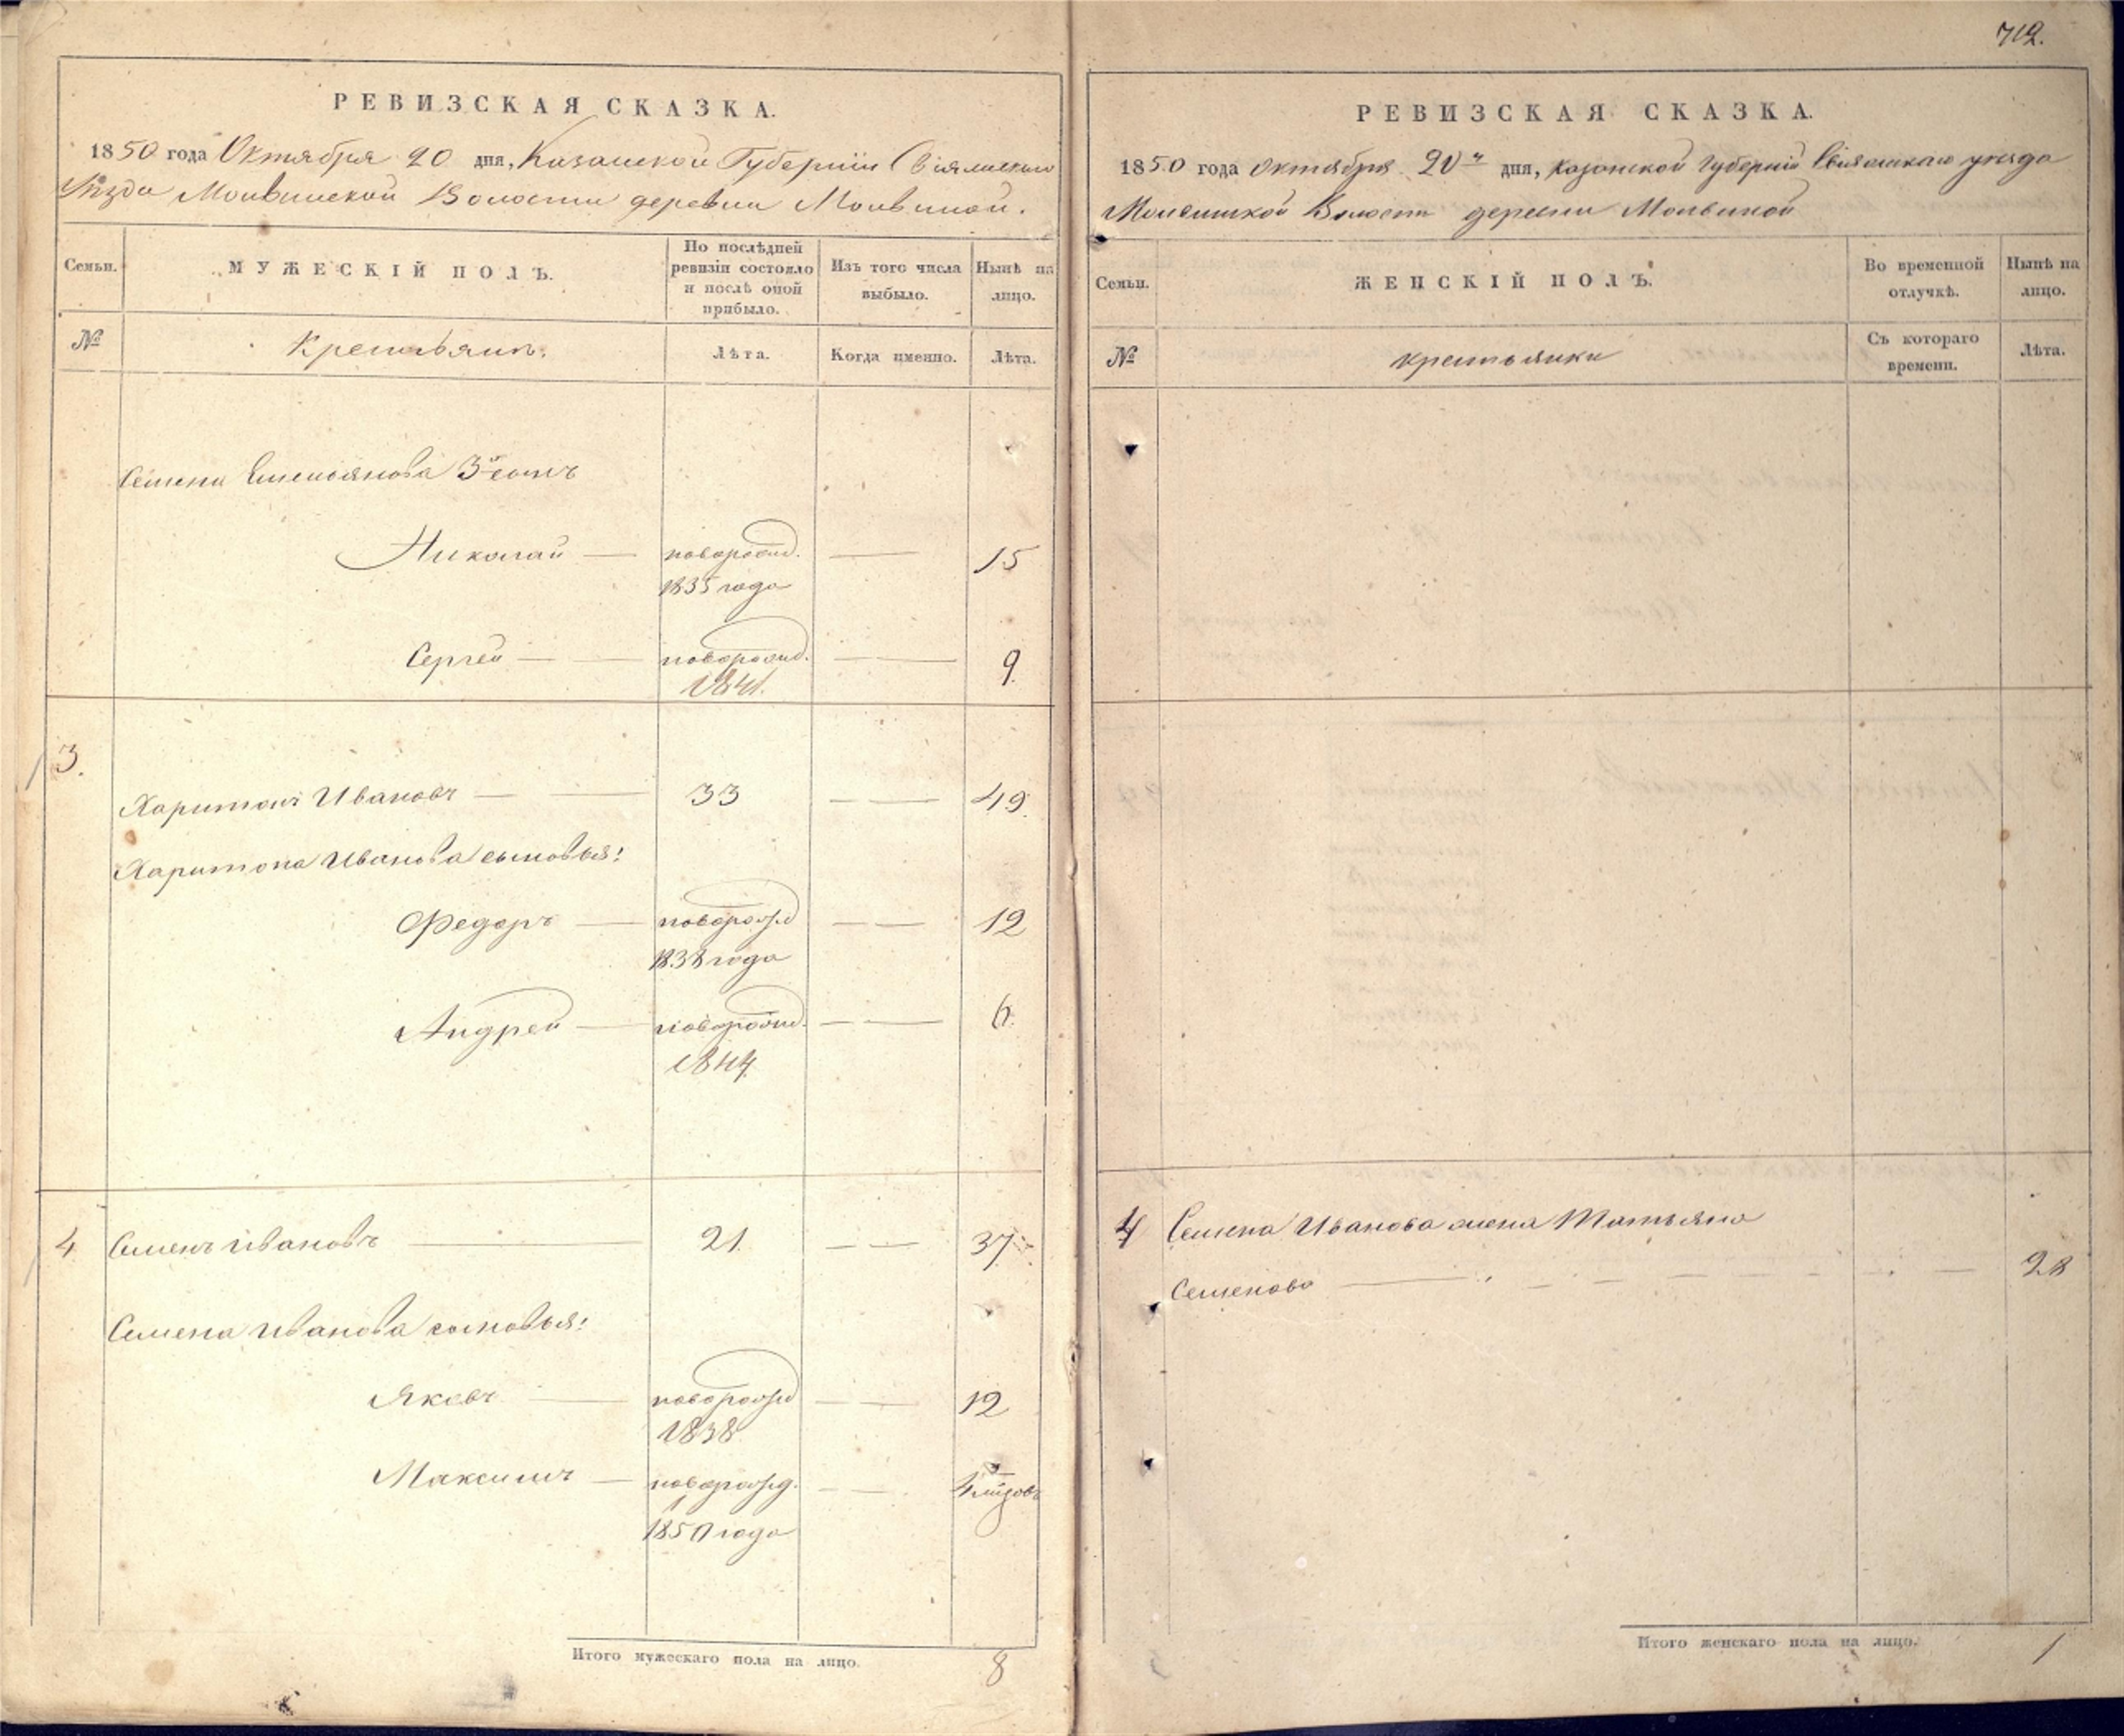 712.
РЕВИЗСКАЯ СКАЗКА.
1850 года Октября 20 дня, Казанской Губернии Свіяжскаго
Уѣзда Молвинской Волости деревни Молвиной.
Семьи.
МУЖЕСКІЙ ПОЛЪ.
По послѣдней ревизіи состояло и послѣ оной прибыло.
Изъ того числа выбыло.
Нынѣ на лицо.
№
Крестьянъ.
Лѣта.
Когда именно.
Лѣта.
Семена Емельянова 3й сынъ
Николай новорожд. 15
1835 года
Сергей новорожд. 9
1841.
3.
Харитонъ Ивановъ 33 49
Харитона Иванова сыновья:
Федоръ новорожд 12
1838 года
Андрей новорожд. 6
1844
4 Семенъ Ивановъ 21. 37
Семена Иванова сыновья:
Яковъ новорожд 12
1838
Максимъ новорожд.
1850 года
Итого мужескаго пола на лицо. 8
РЕВИЗСКАЯ СКАЗКА.
1850 года Октября 20го дня, Казанской Губерніи Свіяжскаго уезда
Молвинской Волости деревни Молвиной
Семьи.
ЖЕНСКІЙ ПОЛЪ.
Во временной отлучкѣ.
Нынѣ на лицо.
№
крестьянки
Съ котораго времени.
Лѣта.
4 Семена Иванова жена Татьяна
Семенова 28
Итого женскаго пола на лицо. 1